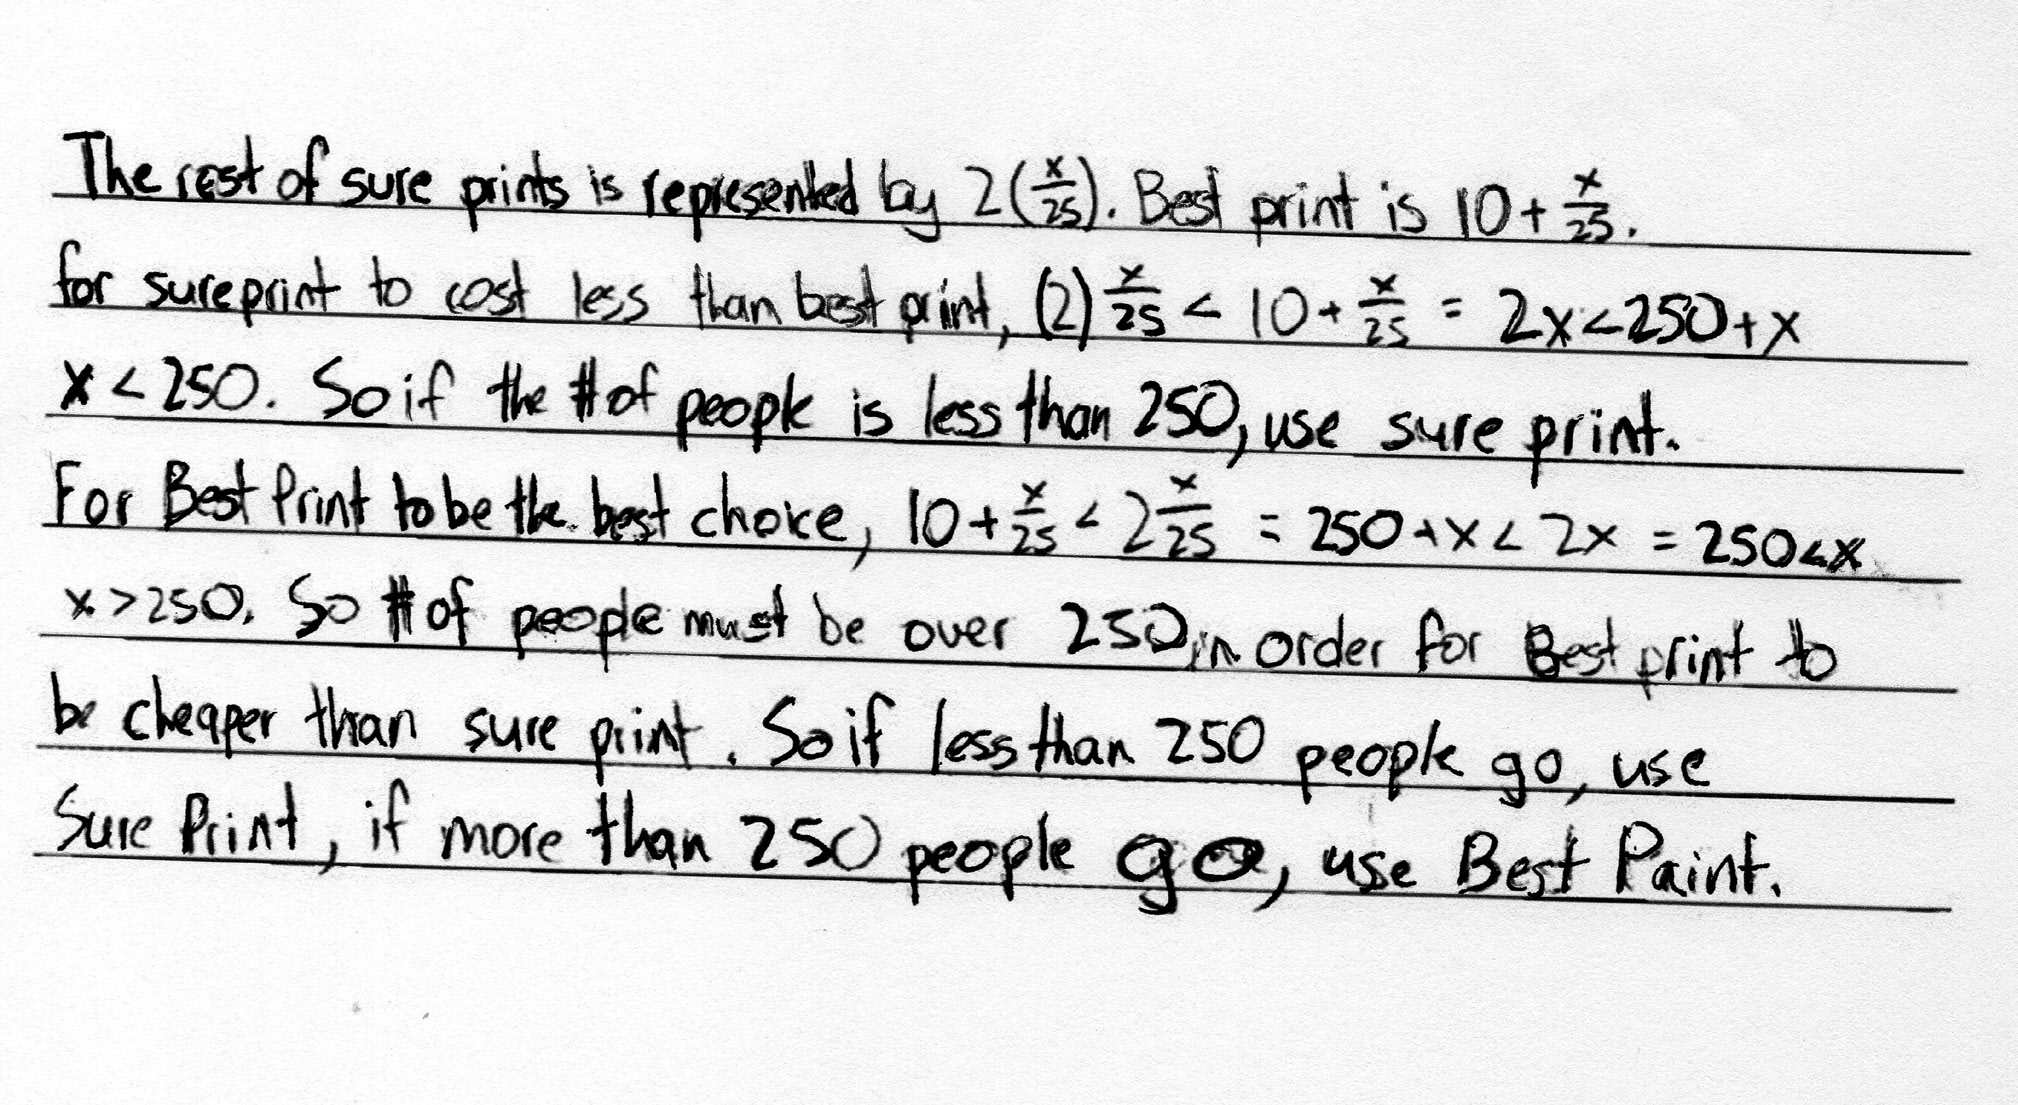 The cost of sure prints is represented by 2(x/25). Best print is 10 + x/25.
for sure print to cost less than best print, (2) x/25 < 10 + x/25 = 2x < 250 + x
x < 250. So if the # of people is less than 250, use sure print.
For Best Print to be the best choice, 10 + x/25 < 2 x/25 = 250 + x < 2x = 250 < x
x > 250. So # of people must be over 250, in order for Best print to
be cheaper than sure print. So if less than 250 people go, use
Sure Print, if more than 250 people go, use Best Paint.